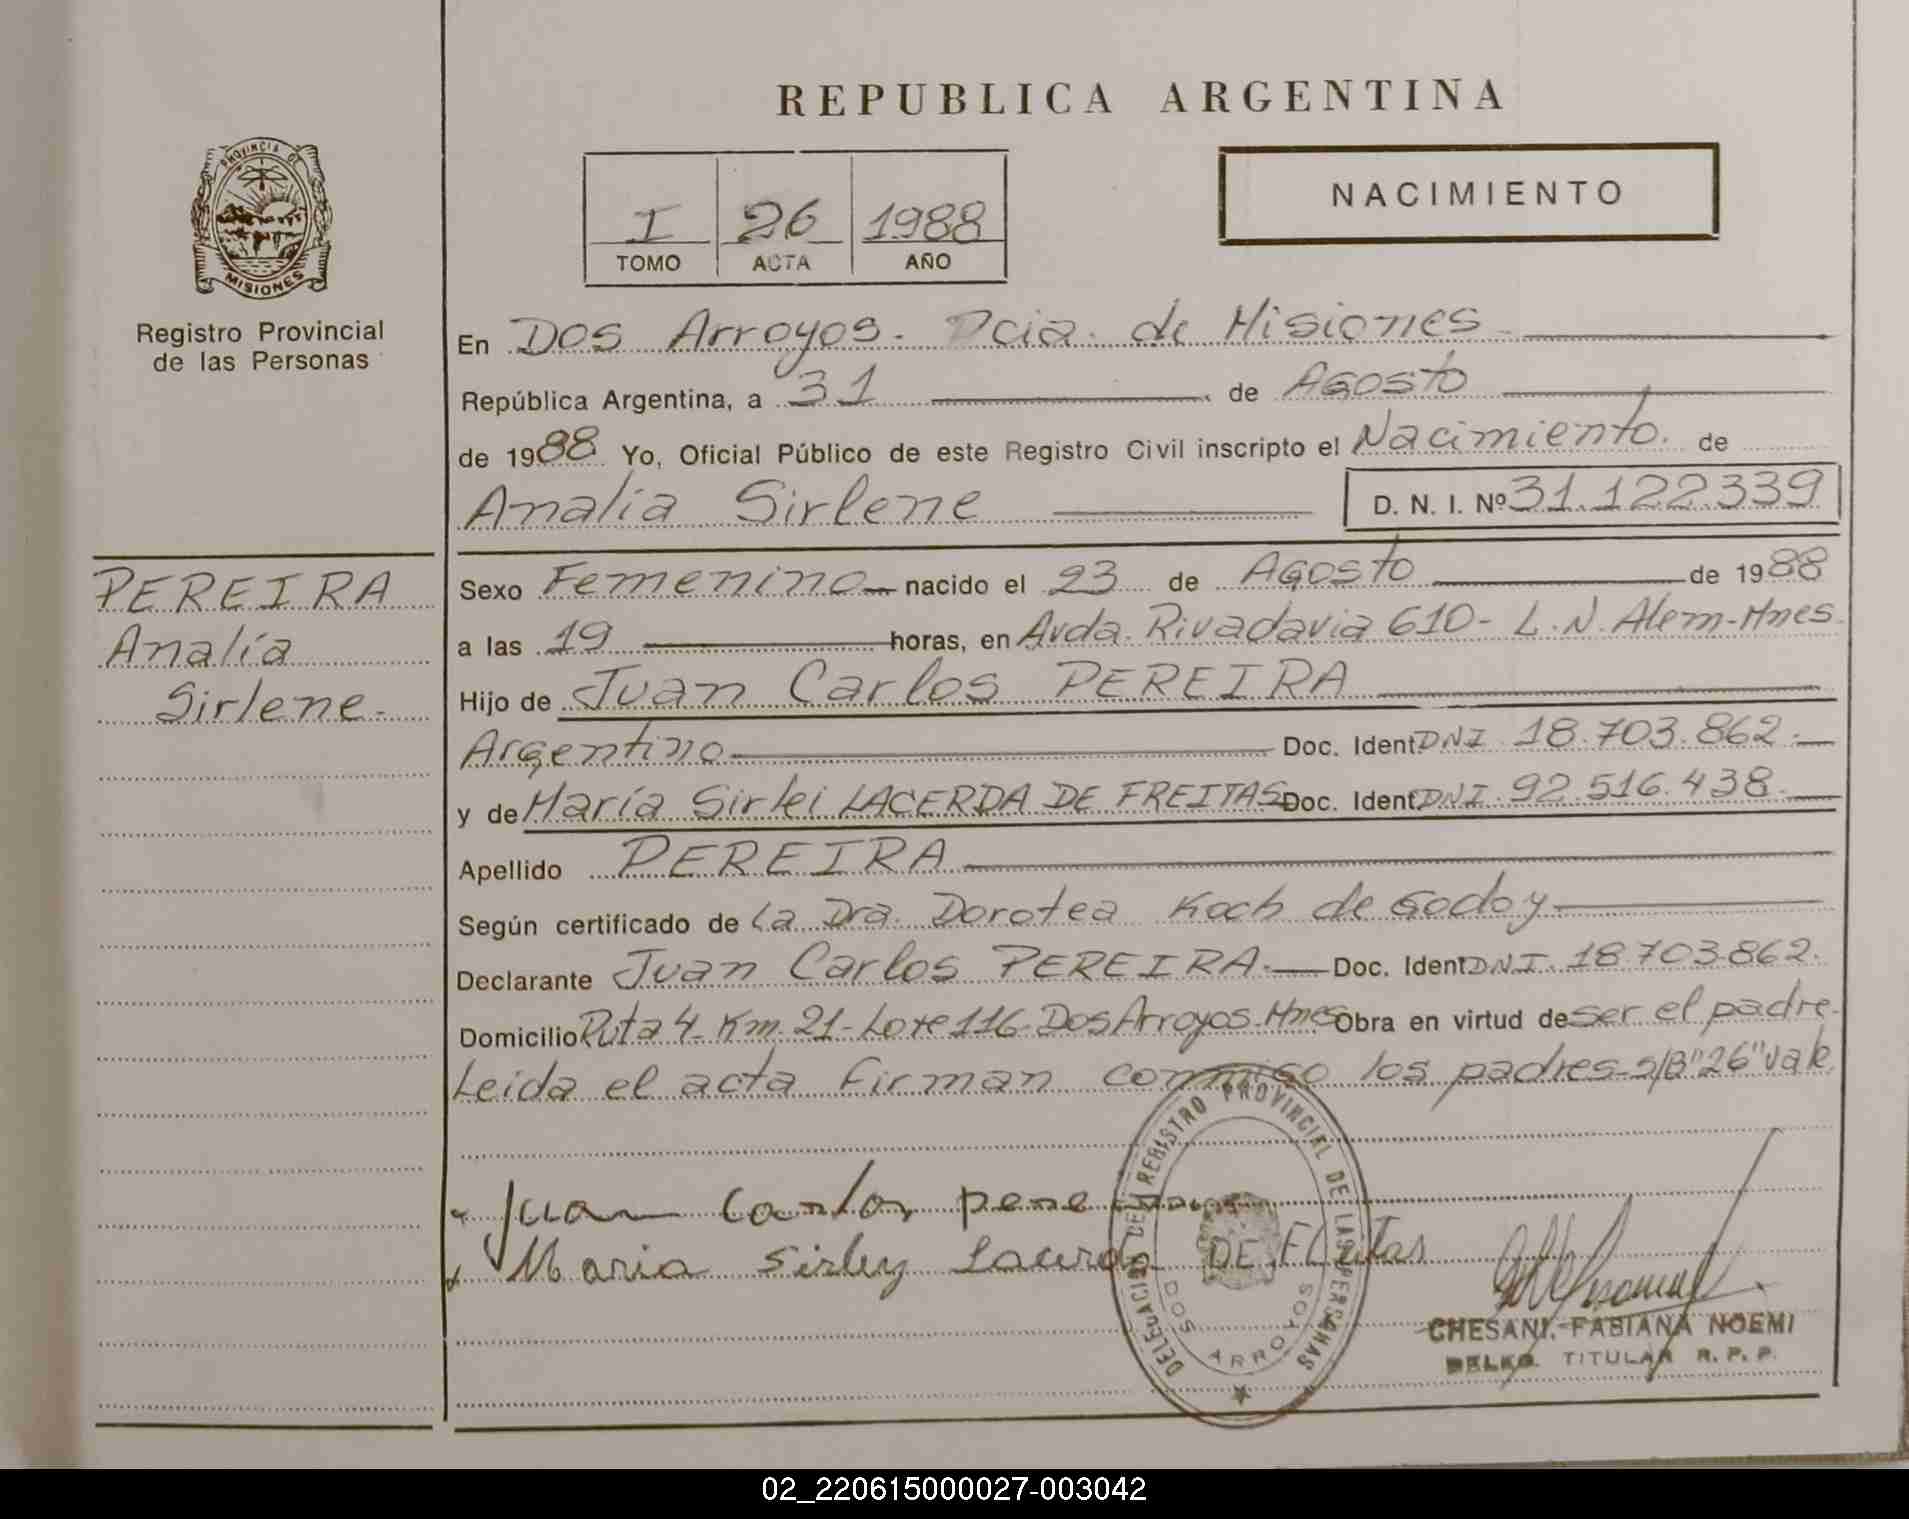 REPUBLICA ARGENTINA
PROVINCIA DE
MISIONES
Registro Provincial
de las Personas
I 26 1988
TOMO ACTA AÑO
NACIMIENTO
En Dos Arroyos. Pcia. de Misiones
República Argentina, a 31 de Agosto
de 1988 Yo, Oficial Público de este Registro Civil inscripto el Nacimiento. de
Analía Sirlene D. N. I. Nº 31.122339
PEREIRA
Analía
Sirlene.-
Sexo Femenino nacido el 23 de Agosto de 1988
a las 19 horas, en Avda. Rivadavia 610- L.N. Alem-Mnes.
Hijo de Juan Carlos PEREIRA
Argentino Doc. Ident. DNI. 18.703.862.-
y de María Sirlei LACERDA DE FREITAS Doc. Ident. DNI. 92.516.438.-
Apellido PEREIRA
Según certificado de La Dra. Dorotea Koch de Godoy
Declarante Juan Carlos PEREIRA.- Doc. Ident. DNI. 18.703.862.
Domicilio Ruta 4- Km. 21- Lote 116- Dos Arroyos-Mnes Obra en virtud de ser el padre.
Leida el acta firman conmigo los padres- s/B "26" vale.
Juan Carlos pereira
Maria Sirley Lacerda DE FREitas
DELEGACION DEL REGISTRO PROVINCIAL DE LAS PERSONAS
DOS ARROYOS
CHESANI, FABIANA NOEMI
DELEG. TITULAR R. P. P.
02_220615000027-003042